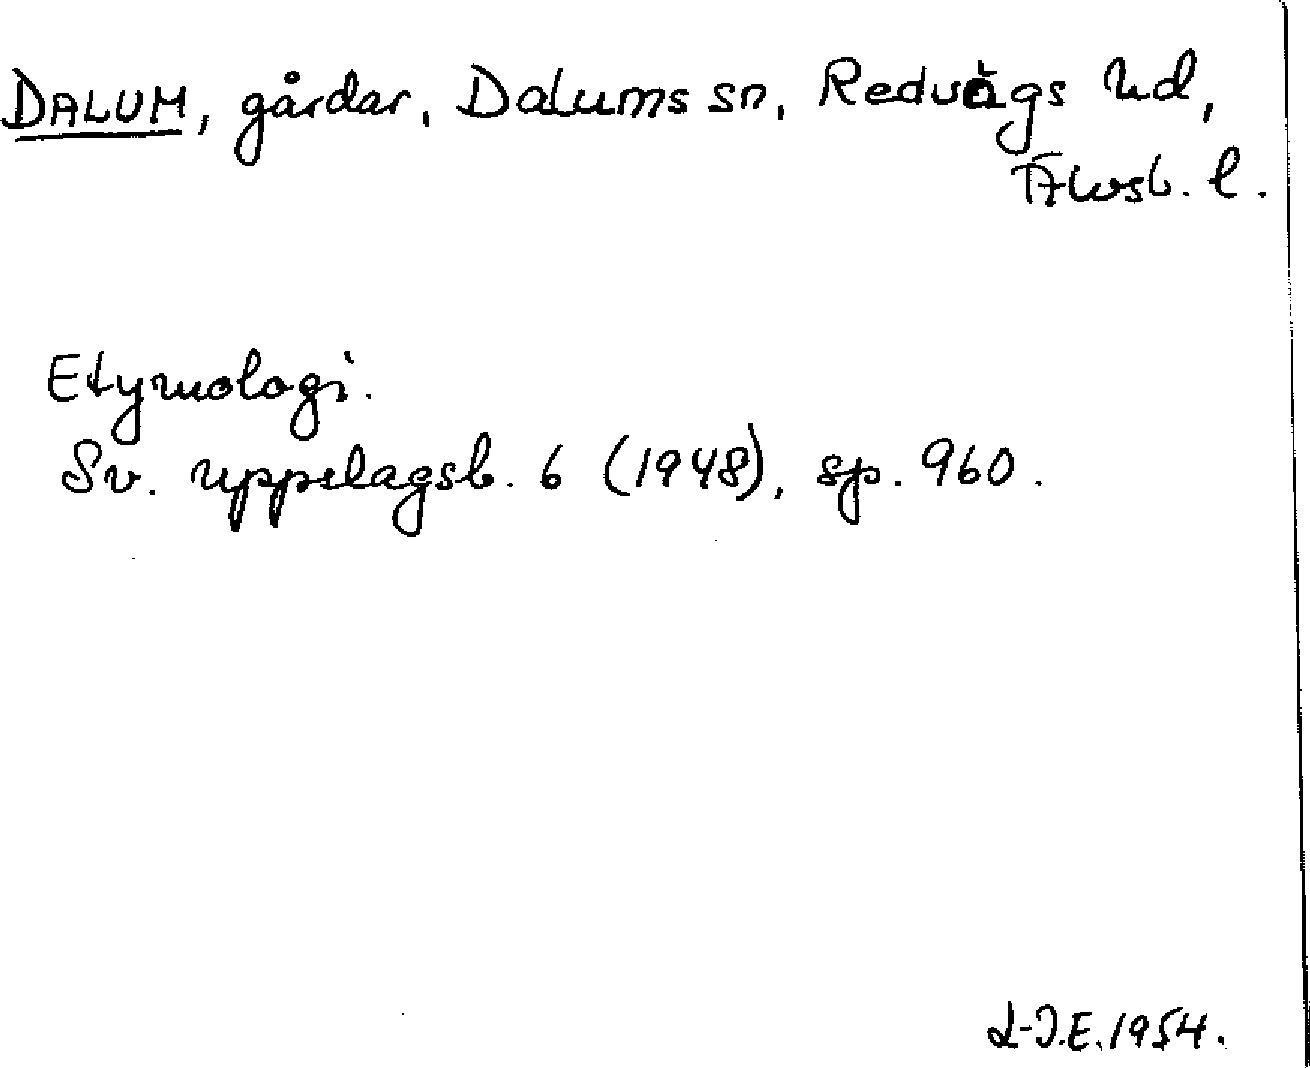 DALUM, gårdar, Dalums sn, Redvägs hd,
Älvsb. l.
Etymologi.
Sv. uppslagsb. 6 (1948), sp. 960.
L-J.E. 1954.